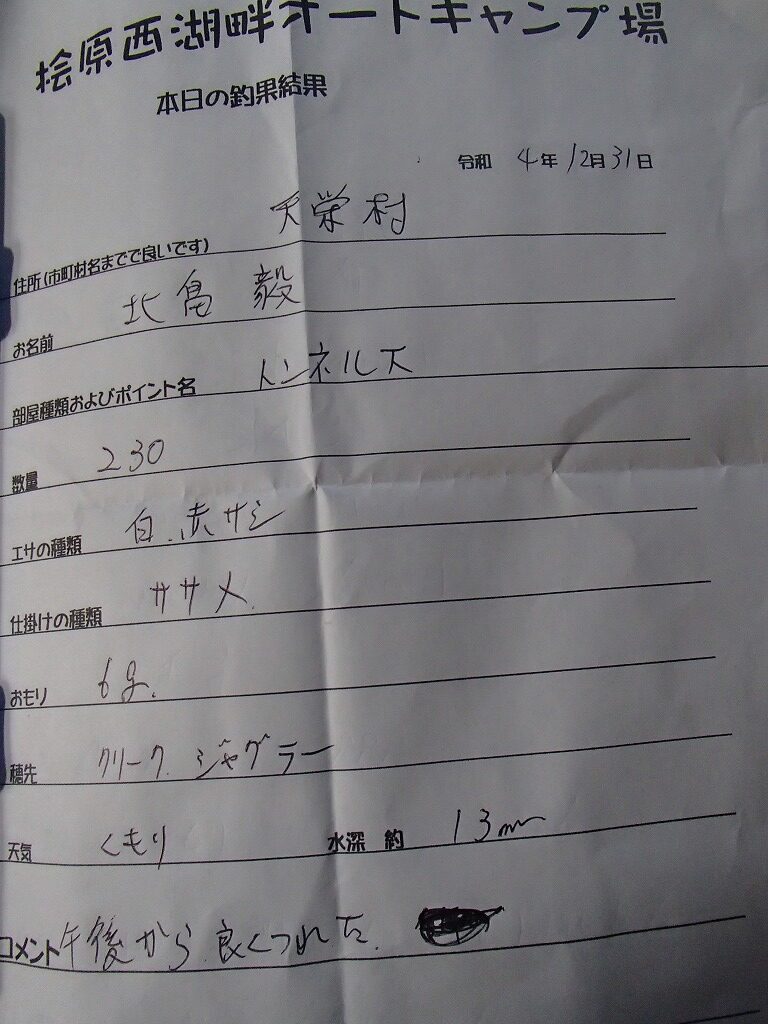 桧原西湖畔オートキャンプ場
本日の釣果結果
令和 4年 12月31日
住所(市町村名までで良いです) 天栄村
お名前 北畠 毅
部屋種類およびポイント名 トンネル下
数量 230
エサの種類 白.赤サシ
仕掛けの種類 ササメ.
おもり 6g.
穂先 クリーク.ジャグラー
天気 くもり 水深 約 13m
コメント 午後から.良くつれた.